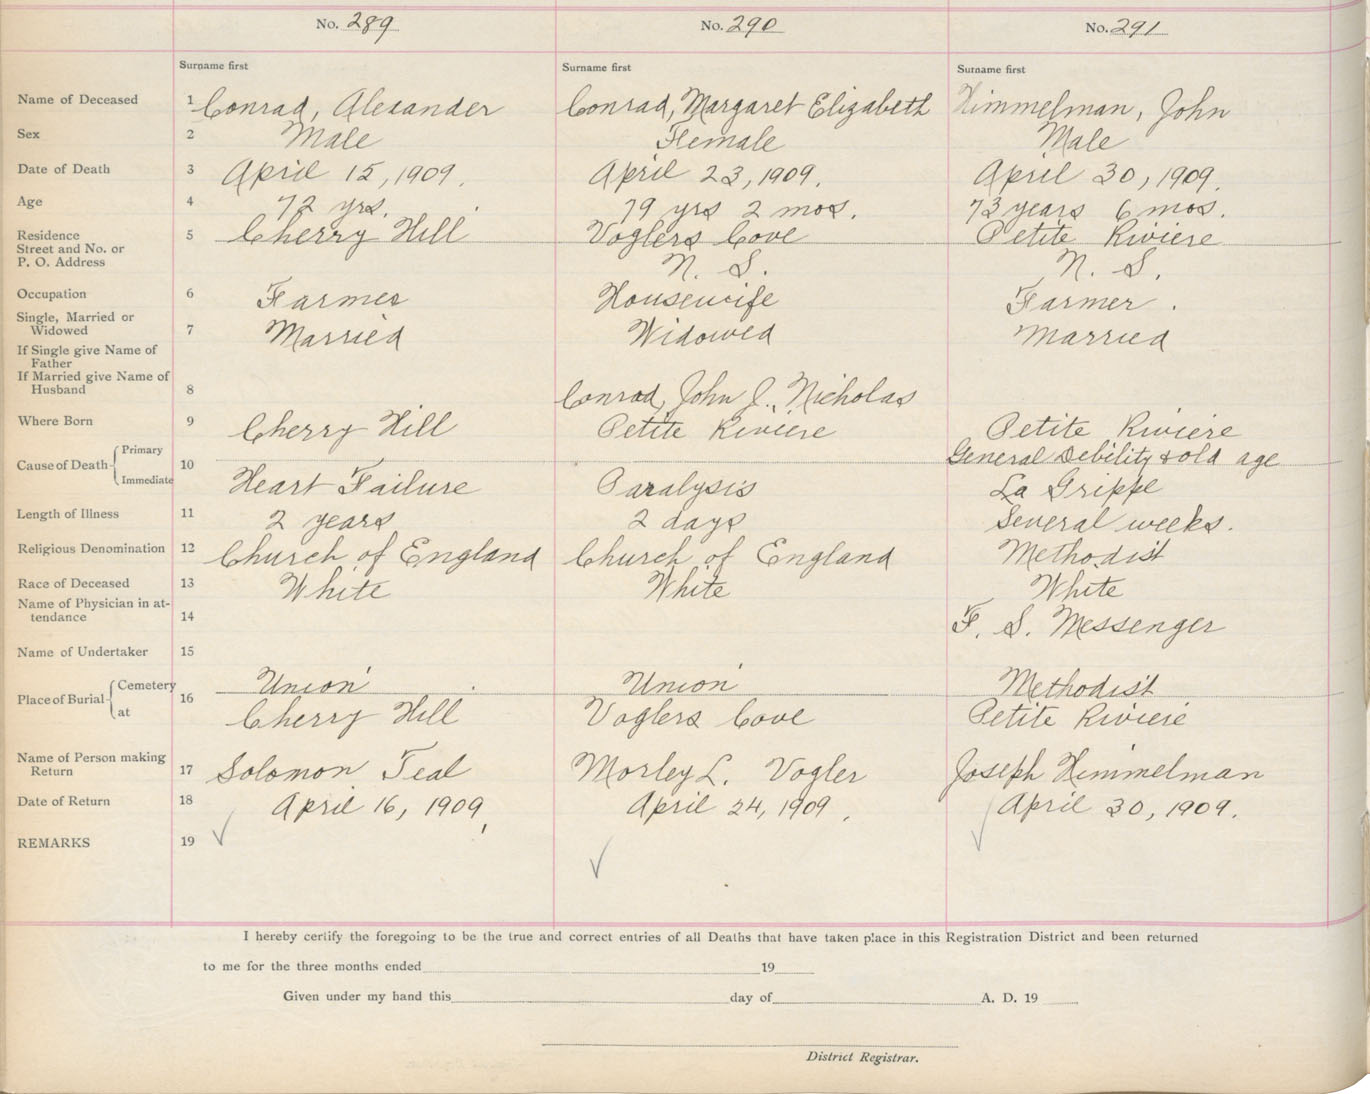 No. 289 No. 290 No. 291
Surname first Surname first Surname first
Name of Deceased 1 Conrad, Alexander Conrad, Margaret Elizabeth Himmelman, John
Sex 2 Male Female Male
Date of Death 3 April 15, 1909. April 23, 1909. April 30, 1909.
Age 4 72 yrs. 79 yrs 2 mos. 73 years 6 mos.
Residence 5 Cherry Hill Voglers Cove Petite Riviere
Street and No. or
P. O. Address N. S. N. S.
Occupation 6 Farmer Housewife Farmer.
Single, Married or
Widowed 7 Married Widowed Married
If Single give Name of
Father
If Married give Name of
Husband 8 Conrad, John J. Nicholas
Where Born 9 Cherry Hill Petite Riviere Petite Riviere
Cause of Death Primary 10 General Debility & old age
Immediate Heart Failure Paralysis La Grippe
Length of Illness 11 2 years 2 days Several weeks.
Religious Denomination 12 Church of England Church of England Methodist
Race of Deceased 13 White White White
Name of Physician in at-
tendance 14 F. S. Messenger
Name of Undertaker 15
Place of Burial Cemetery 16 Union Union Methodist
at Cherry Hill Voglers Cove Petite Riviere
Name of Person making
Return 17 Solomon Teal Morley L. Vogler Joseph Himmelman
Date of Return 18 April 16, 1909, April 24, 1909. April 30, 1909.
REMARKS 19
I hereby certify the foregoing to be the true and correct entries of all Deaths that have taken place in this Registration District and been returned
to me for the three months ended 19
Given under my hand this day of A. D. 19
District Registrar.